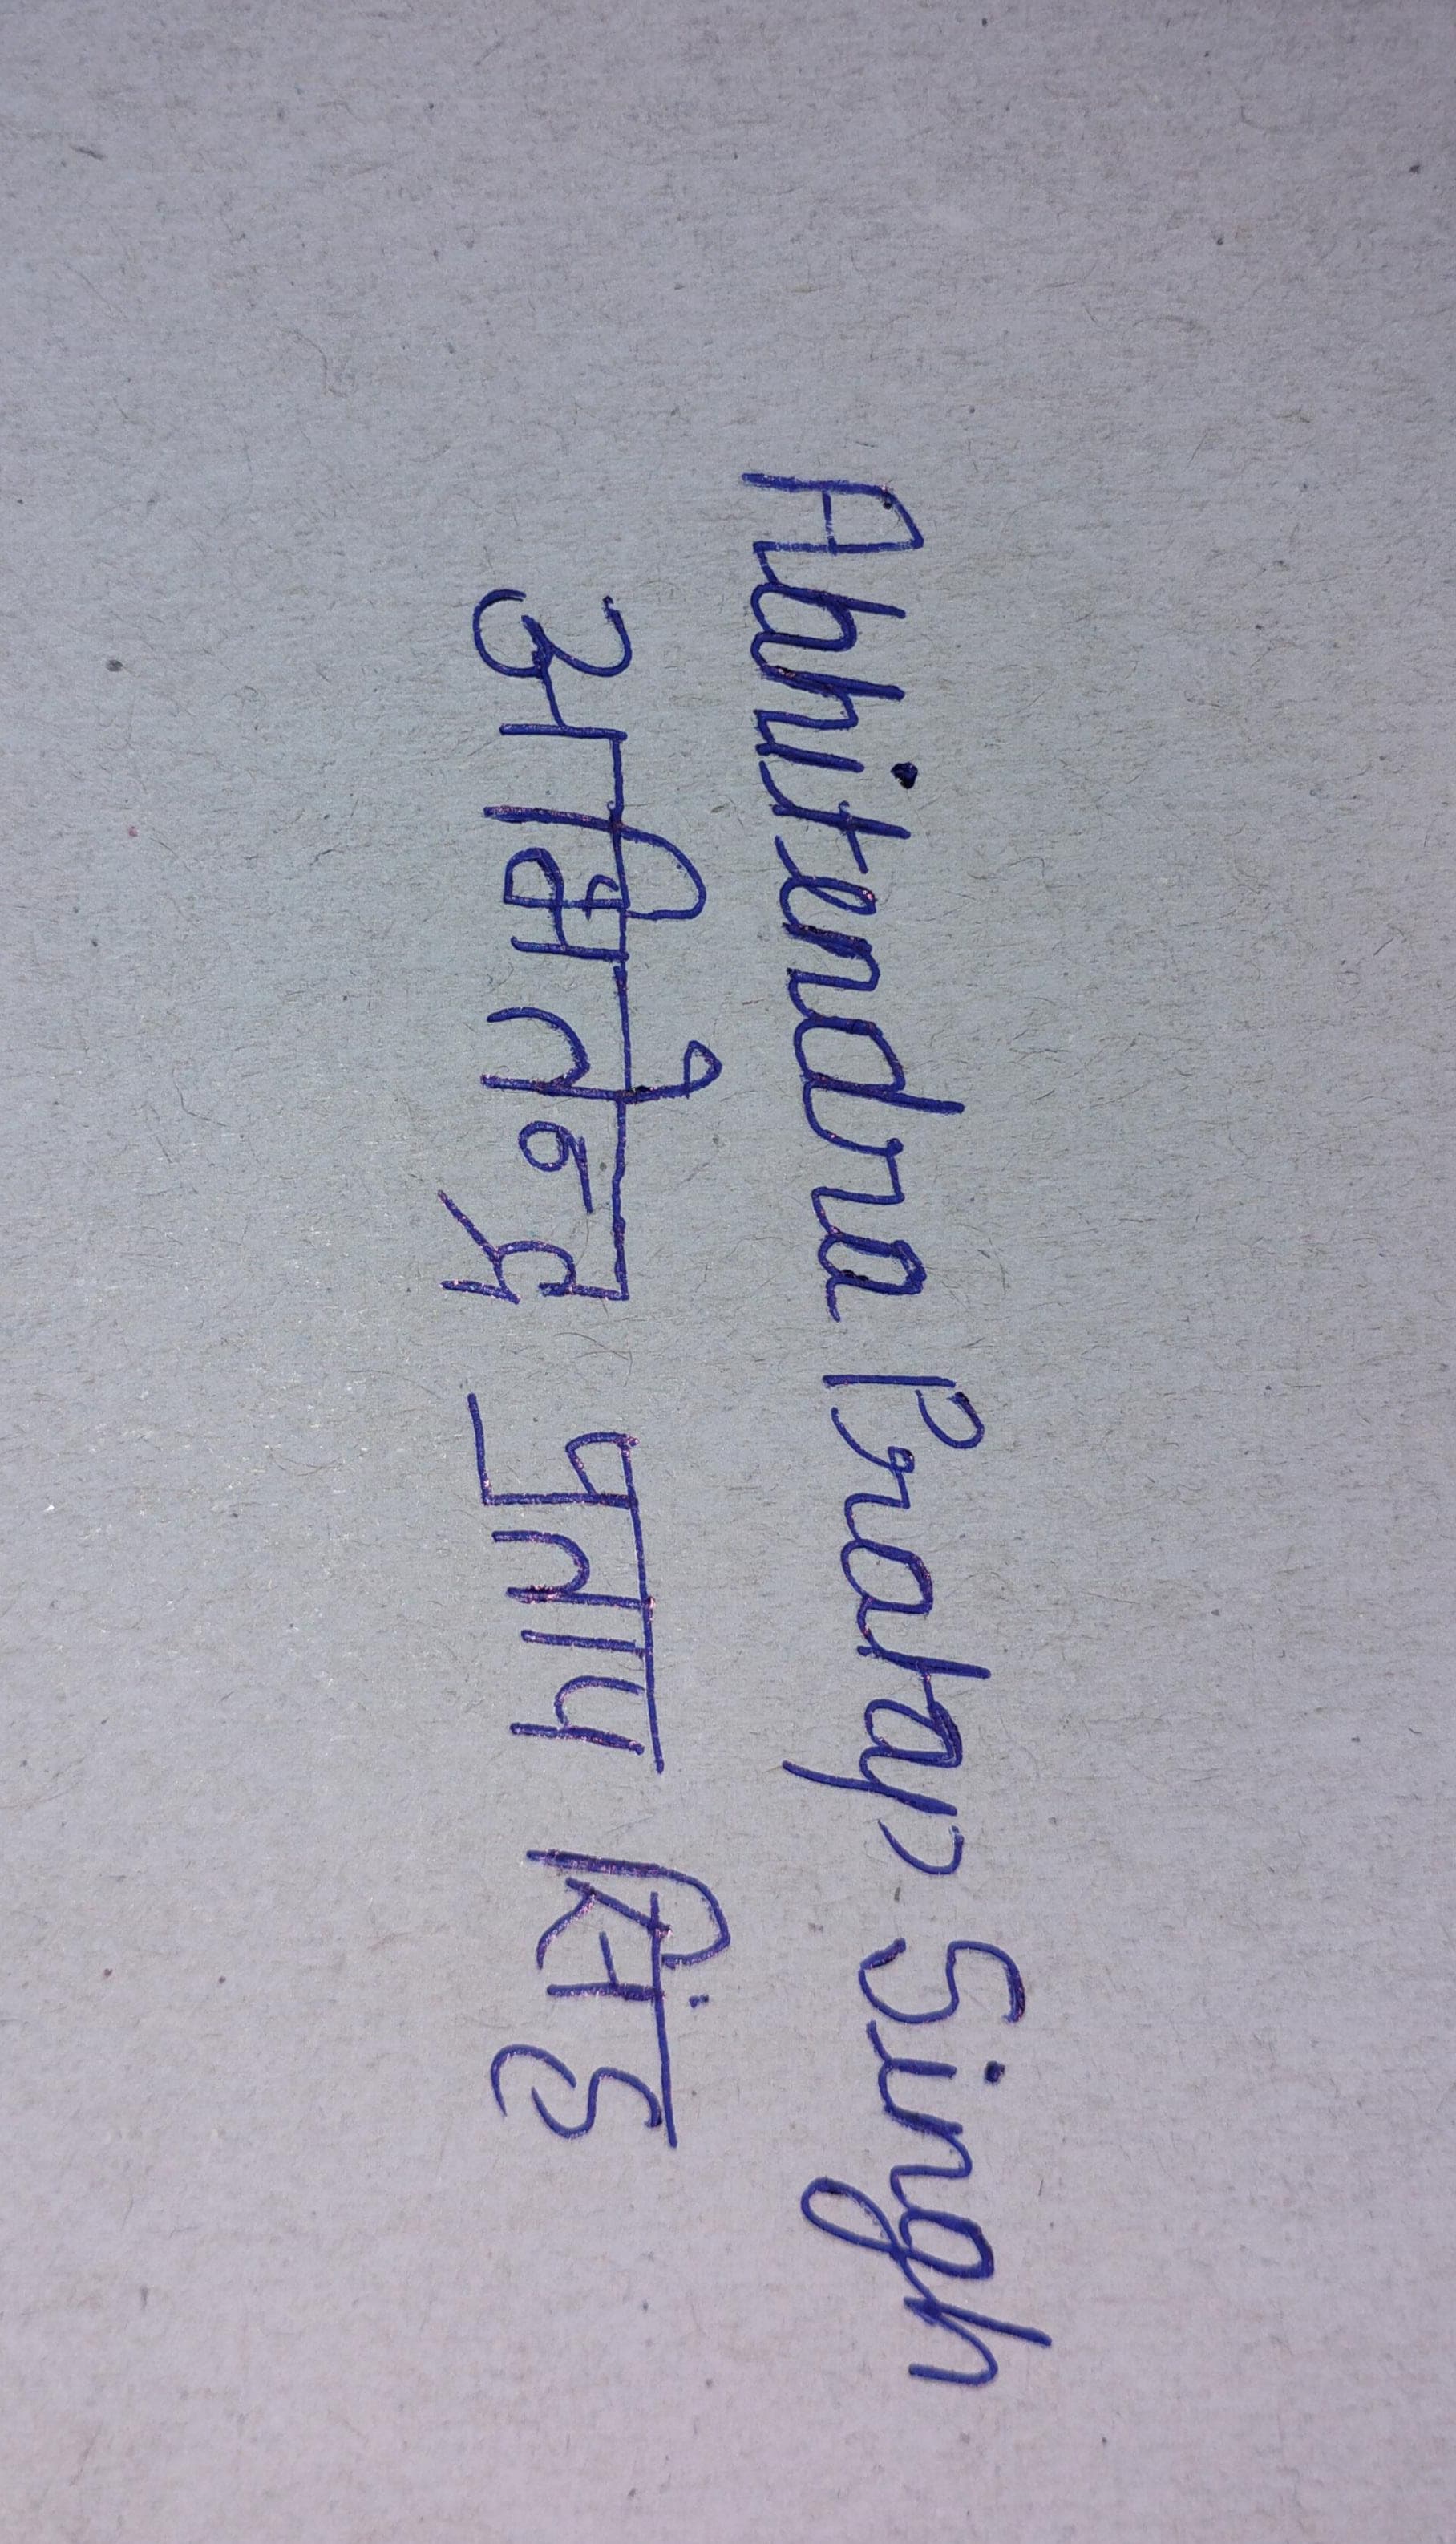 Abhitendra Pratap Singh
अभितेन्द्र प्रताप सिंह